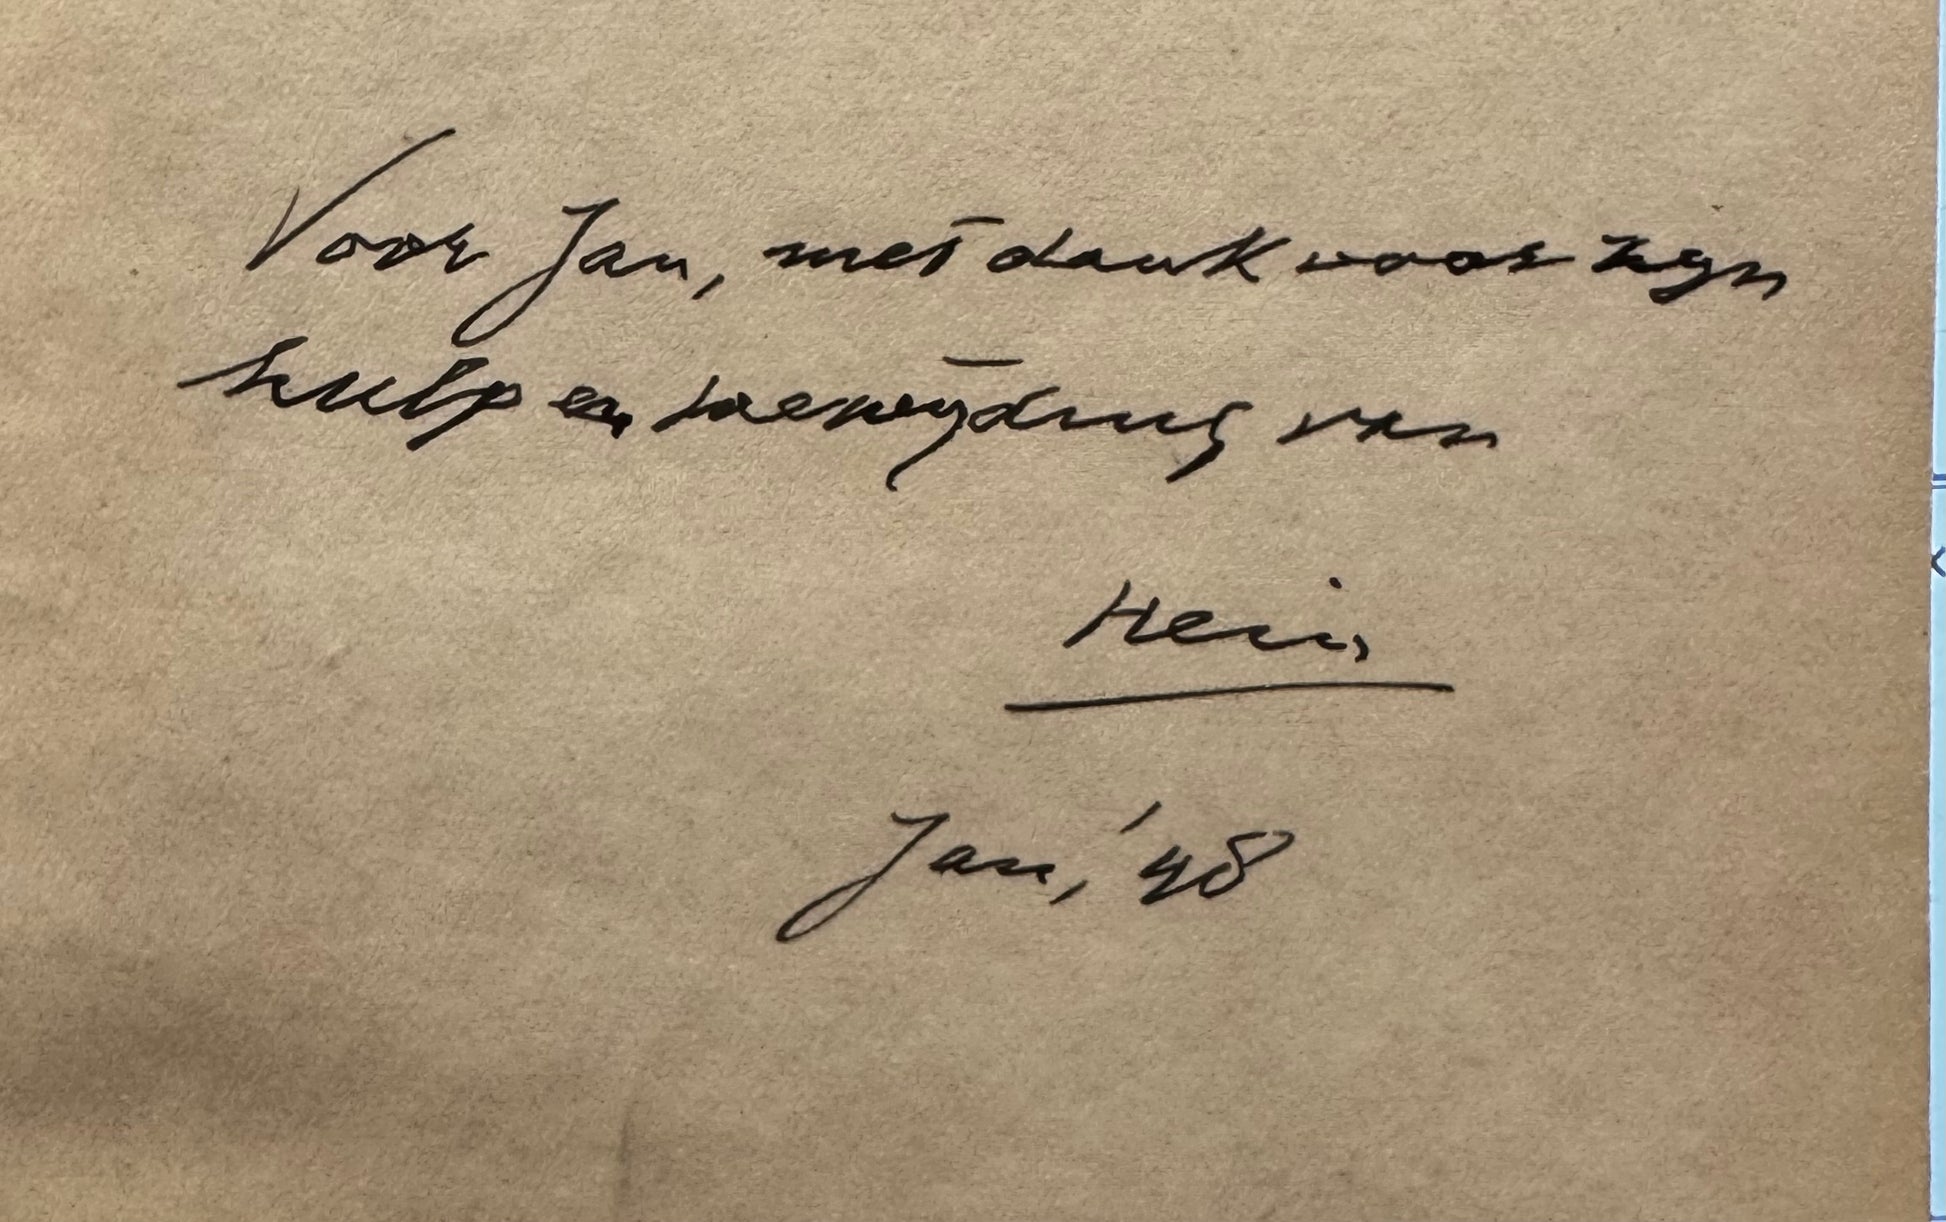 Voor Jan, met dank voor zijn
hulp en toewijding van
Hein
Jan, '48